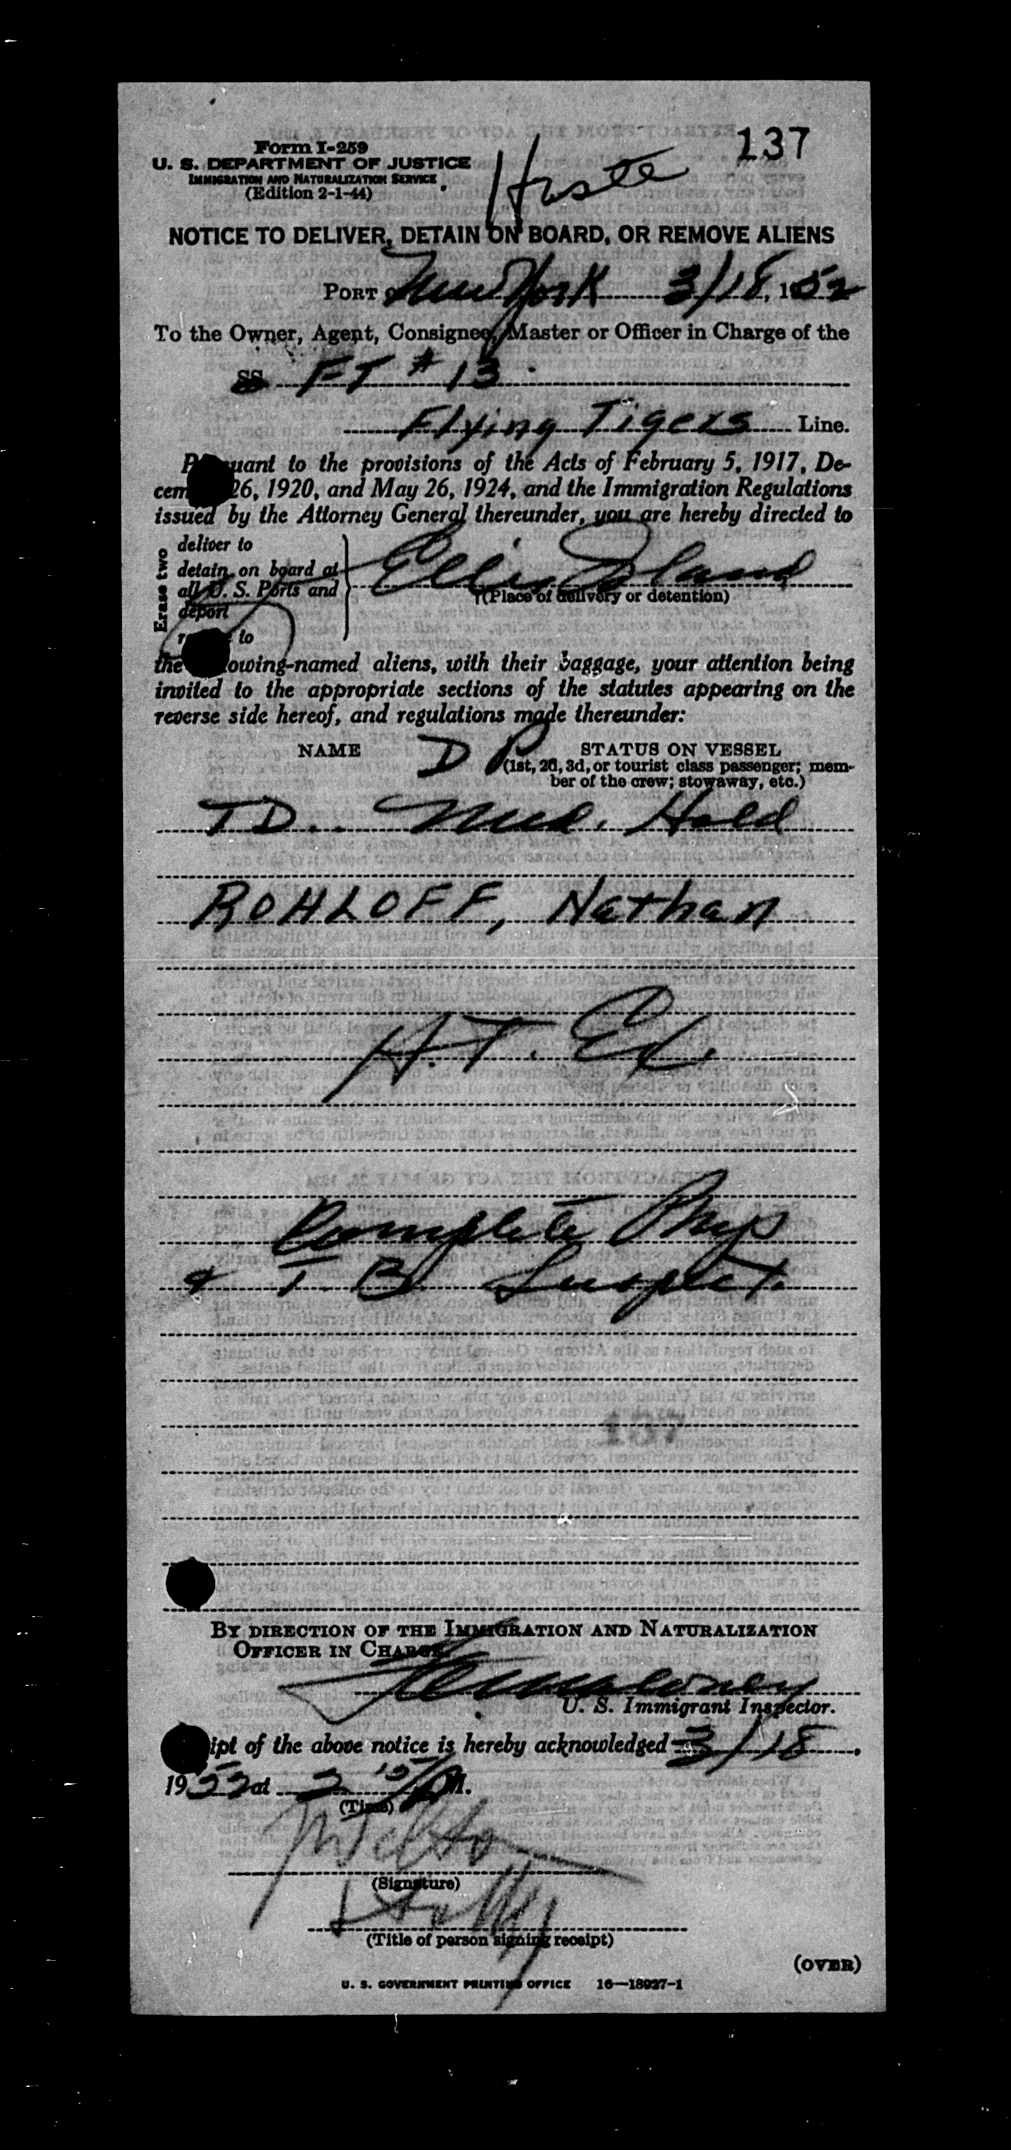 137
Form I-259
U. S. DEPARTMENT OF JUSTICE
IMMIGRATION AND NATURALIZATION SERVICE
(Edition 2-1-44)
NOTICE TO DELIVER, DETAIN ON BOARD, OR REMOVE ALIENS
PORT New York 3/18, 1952
To the Owner, Agent, Consignee, Master or Officer in Charge of the
SS FT # 13
Flying Tigers Line.
Pursuant to the provisions of the Acts of February 5, 1917, De-
cem 26, 1920, and May 26, 1924, and the Immigration Regulations
issued by the Attorney General thereunder, you are hereby directed to
Erase two
deliver to
detain on board at
all U. S. Ports and
deport
to
Ellis Island
(Place of delivery or detention)
the following-named aliens, with their baggage, your attention being
invited to the appropriate sections of the statutes appearing on the
reverse side hereof, and regulations made thereunder:
NAME DP STATUS ON VESSEL
(1st, 2d, 3d, or tourist class passenger; mem-
ber of the crew; stowaway, etc.)
TD. Med. Hold
ROHLOFF, Nathan
H.T. Ex.
Complete Phys
& T. B. Suspect.
137
BY DIRECTION OF THE IMMIGRATION AND NATURALIZATION
OFFICER IN CHARGE
U. S. Immigrant Inspector.
Receipt of the above notice is hereby acknowledged 3/18,
1952 at 2 15 PM.
(Time)
(Signature)
(Title of person signing receipt)
(OVER)
U. S. GOVERNMENT PRINTING OFFICE 16—18927-1